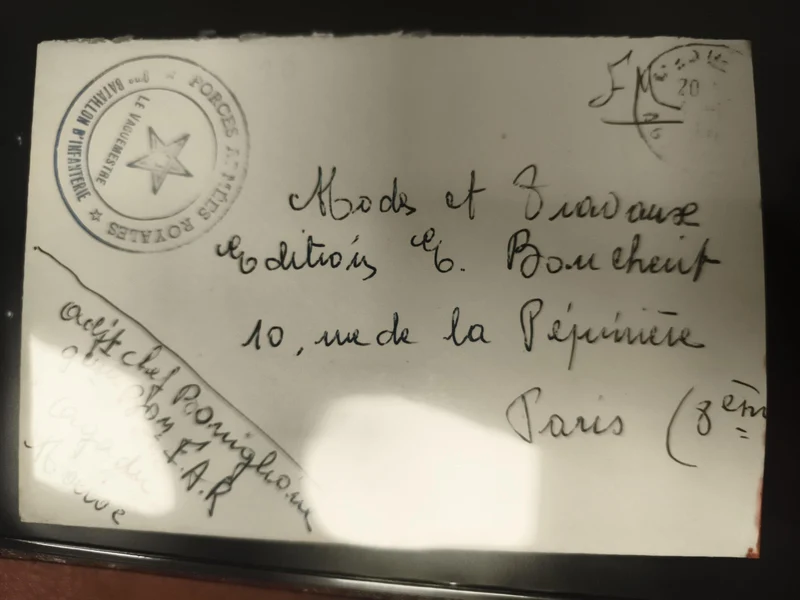 FORCES ARMÉES ROYALES
BATAILLON D'INFANTERIE
LE VAGUEMESTRE
FM
20
Modes et Travaux
Editions E. Boucherit
10, rue de la Pépinière
Paris (8ème
Adjt chef
F.A.R